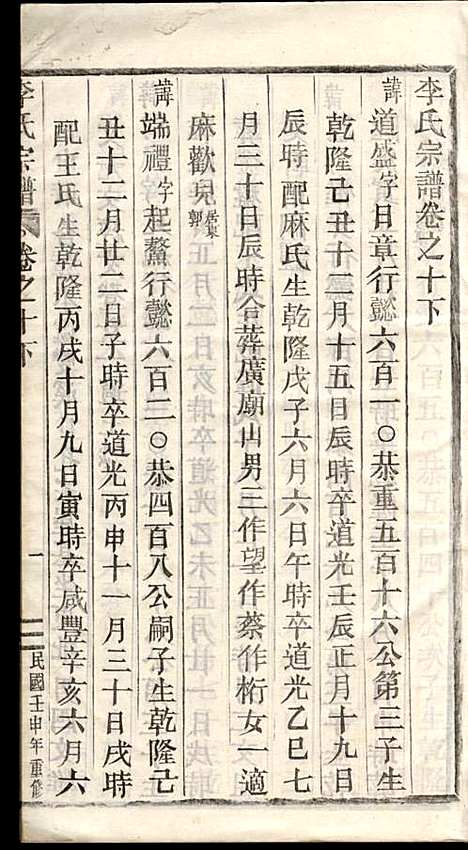 李氏宗譜卷之十下
諱道盛字日章行懿六百一〇恭重五百十六公第三子生
乾隆己丑十二月十五日辰時卒道光壬辰正月十九日
辰時配麻氏生乾隆戊子六月六日午時卒道光乙巳七
月三十日辰時合葬廣廟山男三作望作蔡作桁女一適
麻歡兒居東郭
諱端禮字起鰲行懿六百二〇恭四百八公嗣子生乾隆己
丑十二月廿二日子時卒道光丙申十一月三十日戌時
配王氏生乾隆丙戌十月九日寅時卒咸豐辛亥六月六
李氏宗譜 卷之十下 一 民國壬申年重修